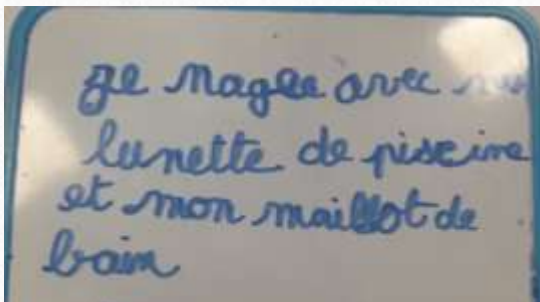 je nage avec
lunette de piscine
et mon maillot de
bain